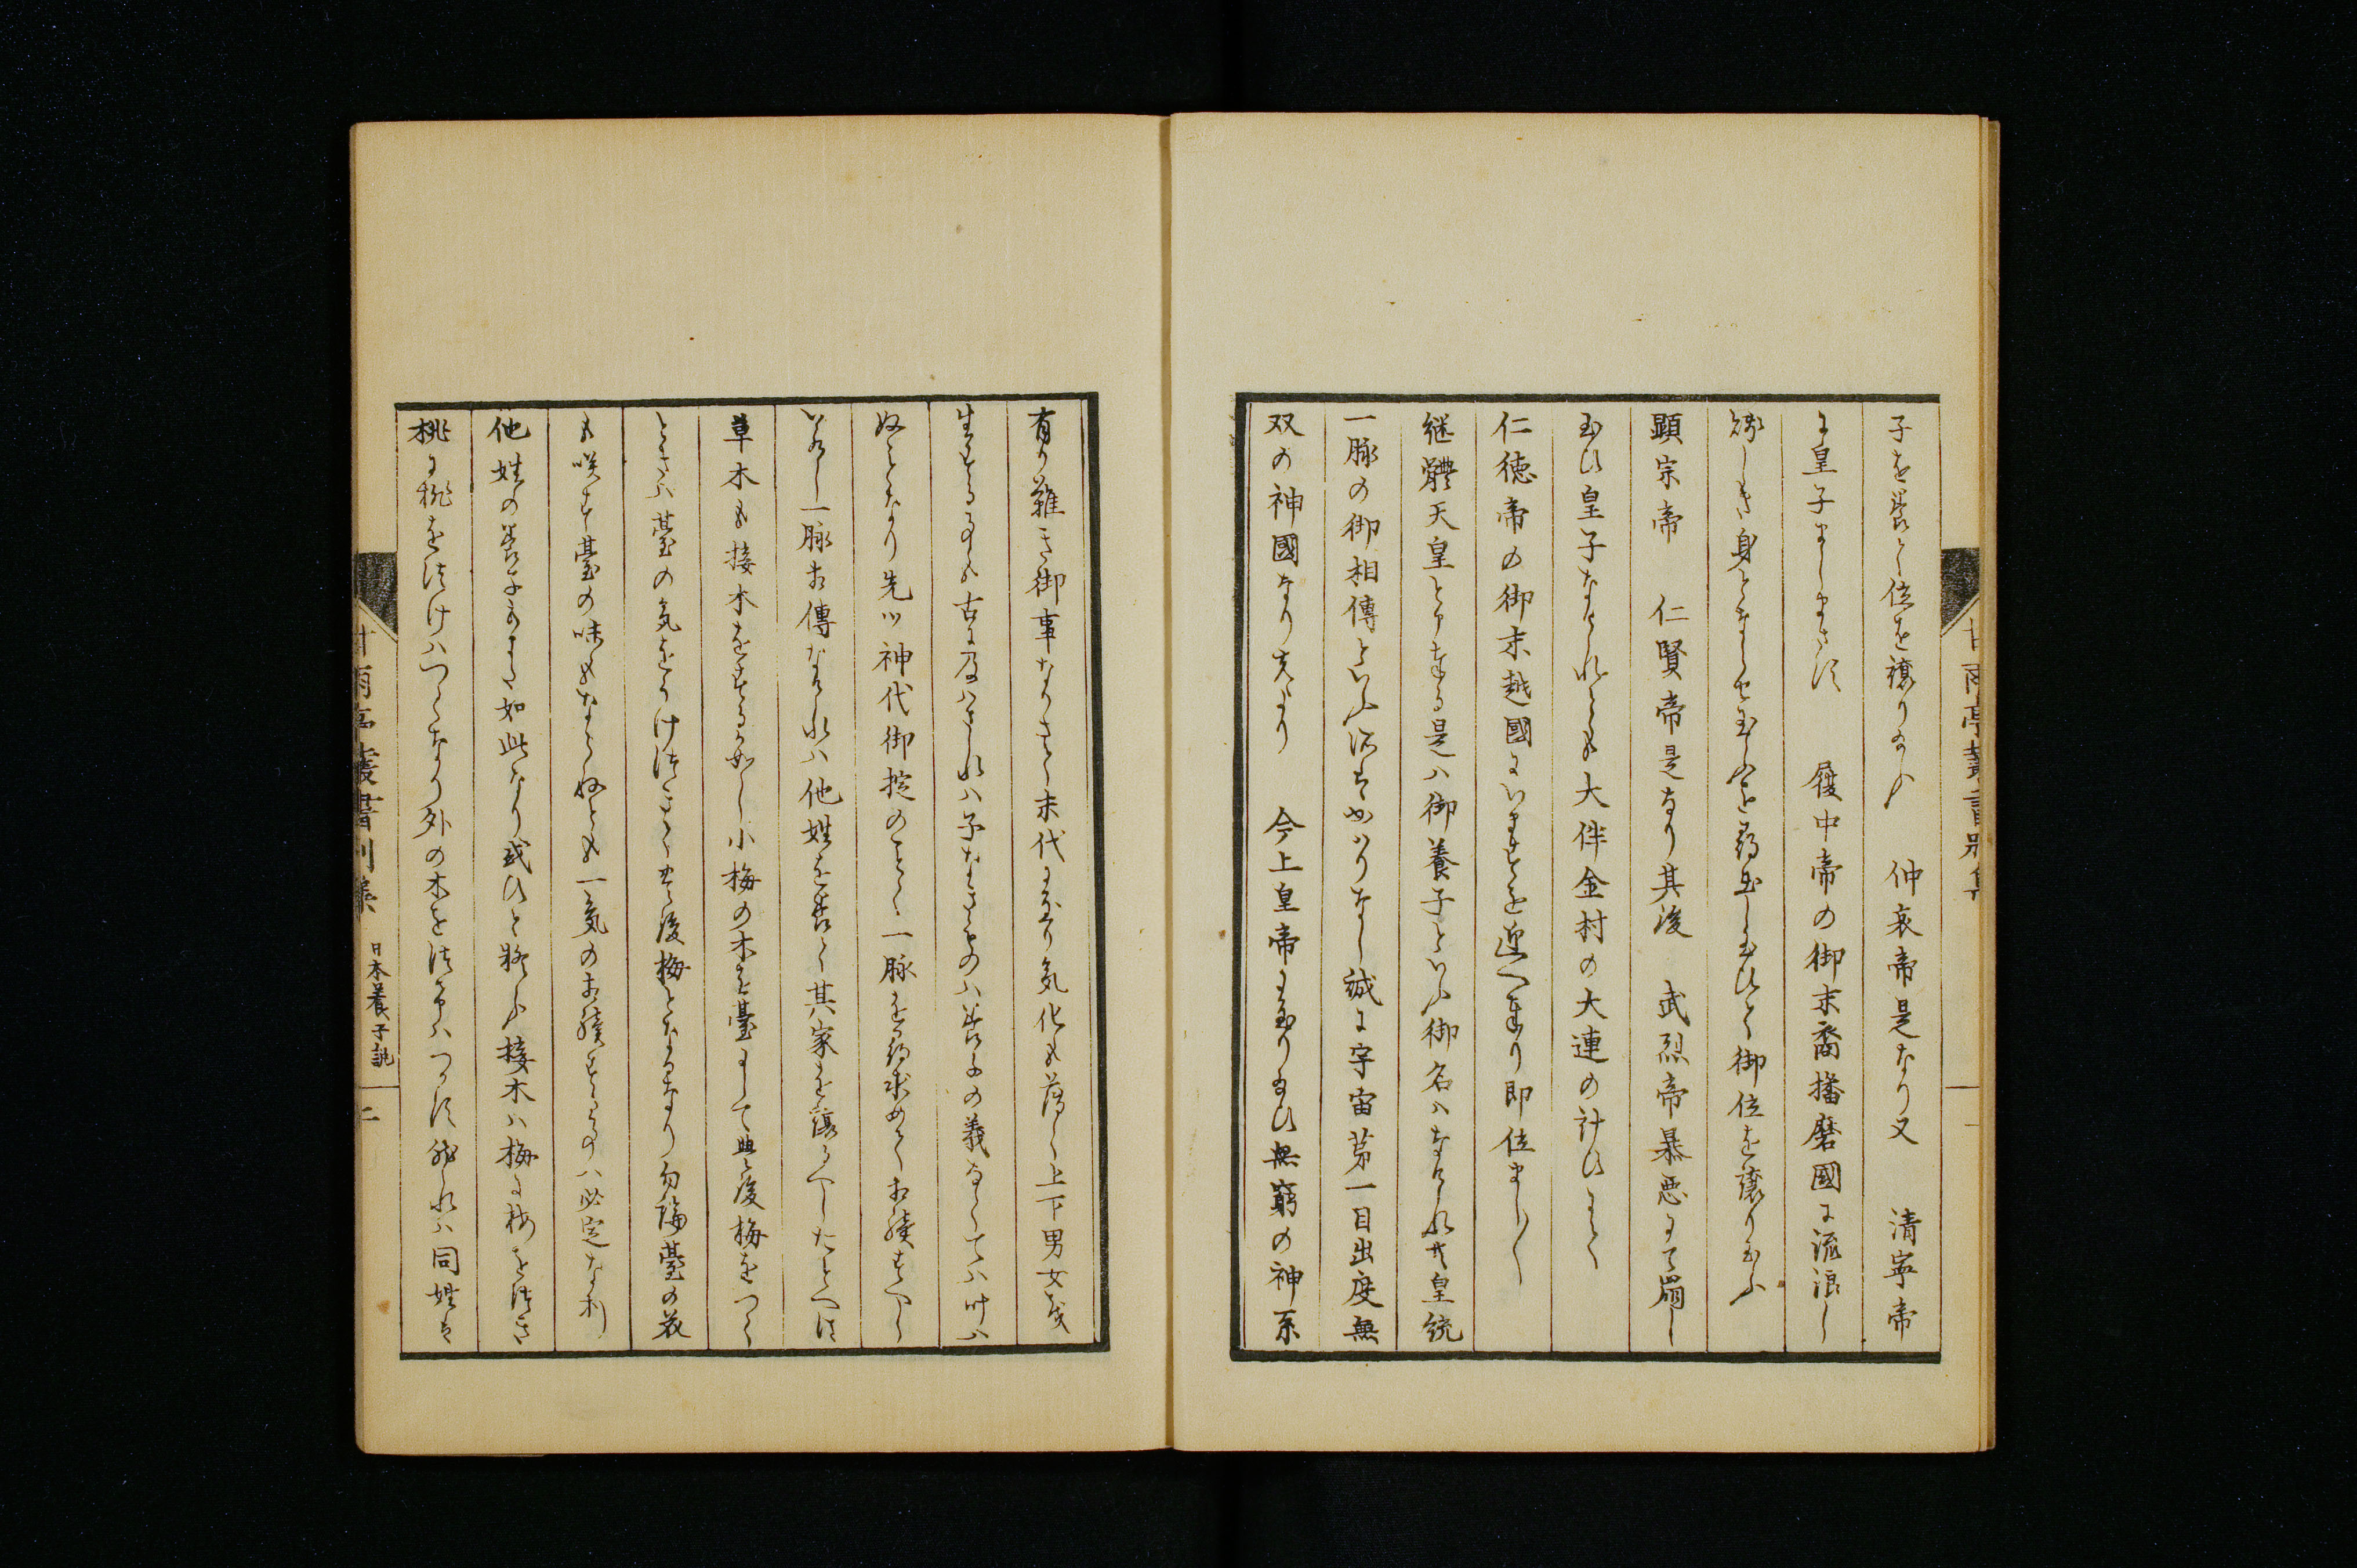 子を養ひ位を譲り給ふ 仲哀帝是なり又 清寧帝
に皇子ましまさす 履中帝の御末裔播磨國に流浪し
賤しき身とならせ玉ふを尋出し玉ひて御位を譲り玉ふ
顕宗帝 仁賢帝是なり其後 武烈帝暴悪にて崩し
玉ひ皇子なけれとも大伴金村の大連の計ひにて
仁徳帝の御末越國にいますを迎へ奉り即位まし〱
継體天皇と申奉る是ハ御養子といふ御名ハなけれ共皇統
一脉の御相傳といふ所はかハりなし誠に宇宙第一目出度無
双の神國なり夫より 今上皇帝に至り給ひ無窮の神系
有り難き御事なりさて末代に至り気化も薄く上下男女
生する事も古に及ハされハ子なきものハ養子の義なくてハ叶ハ
ぬことなり先ツ神代御掟のことく一脉を尋求めて相続すへし
いかに一脉相傳なけれハ他姓を養て其家を譲るへしたとへは
草木も接木をする如し小梅の木を臺にして豊後梅をつく
ときハ臺の気をうけ継きて豊後梅となるなり勿論臺の花
も咲す臺の味もならねとも一気の相続するものハ必定なり
他姓の養子もまた如此なり或ひと難ふ接木ハ梅に梅を継き
桃に桃を继けハつくなり外の木を继てハつかす然れハ同姓は
甘雨亭叢書別集
甘雨亭叢書別集 日本養子説 二